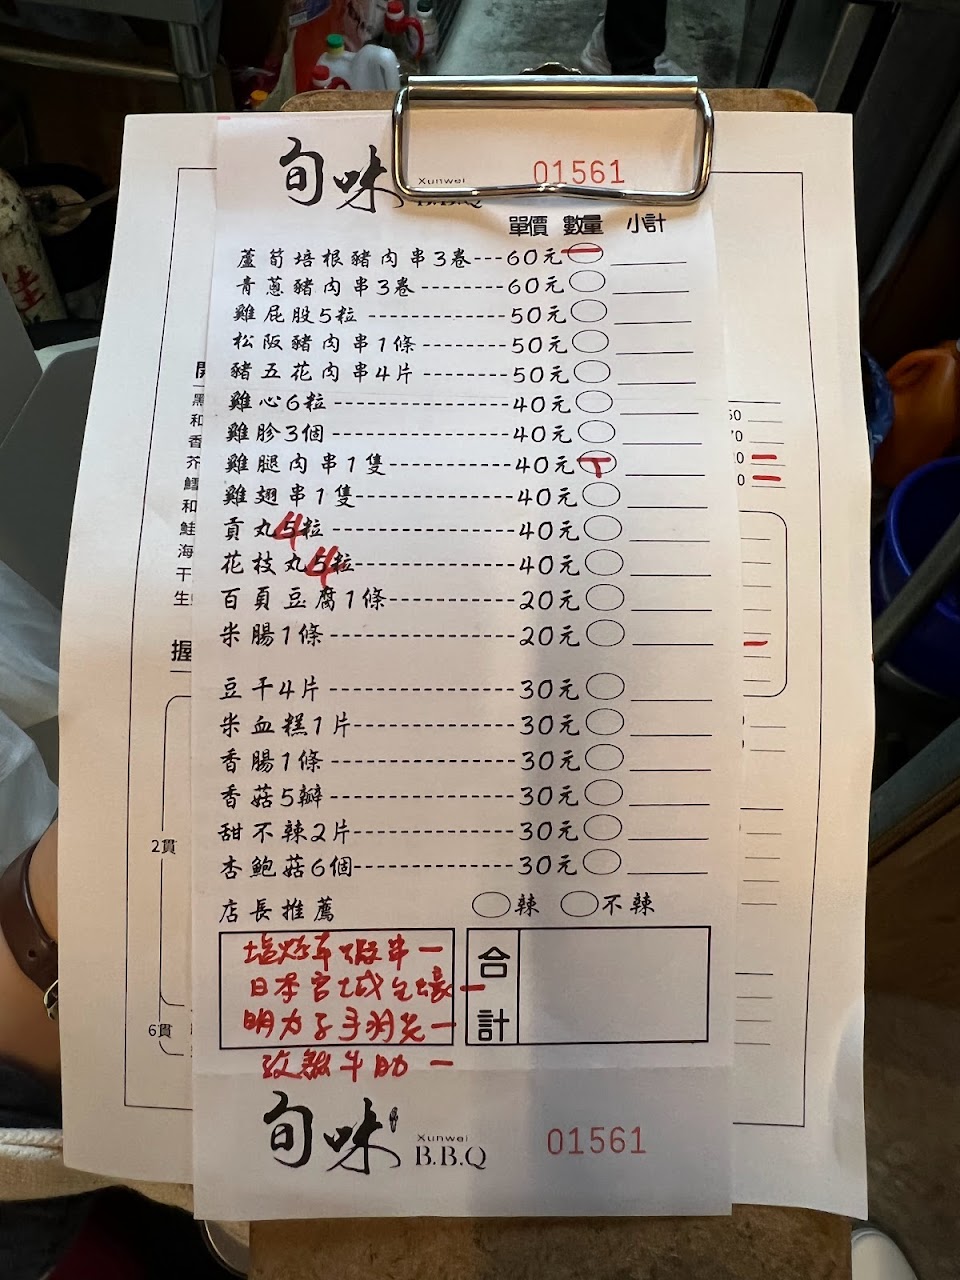 旬味
Xunwei
B.B.Q
01561
單價 數量 小計
蘆筍培根豬肉串3卷---60元 一
青蔥豬肉串3卷--------60元
雞屁股5粒-------------50元
松阪豬肉串1條--------50元
豬五花肉串4片--------50元
雞心6粒----------------40元
雞胗3個----------------40元
雞腿肉串1隻-----------40元 T
雞翅串1隻-------------40元
貢丸4粒----------------40元
花枝丸4粒-------------40元
百頁豆腐1條-----------20元
米腸1條----------------20元
豆干4片----------------30元
米血糕1片-------------30元
香腸1條----------------30元
香菇5瓣----------------30元
甜不辣2片-------------30元
杏鮑菇6個-------------30元
店長推薦 辣 不辣
日本宮城生蠔 一
明太子手羽先 一
牛肋 一
合計
旬味
Xunwei
B.B.Q
01561
黑
和
香
芥
鱈
和
鮭
海
干
生
握
2貫
6貫